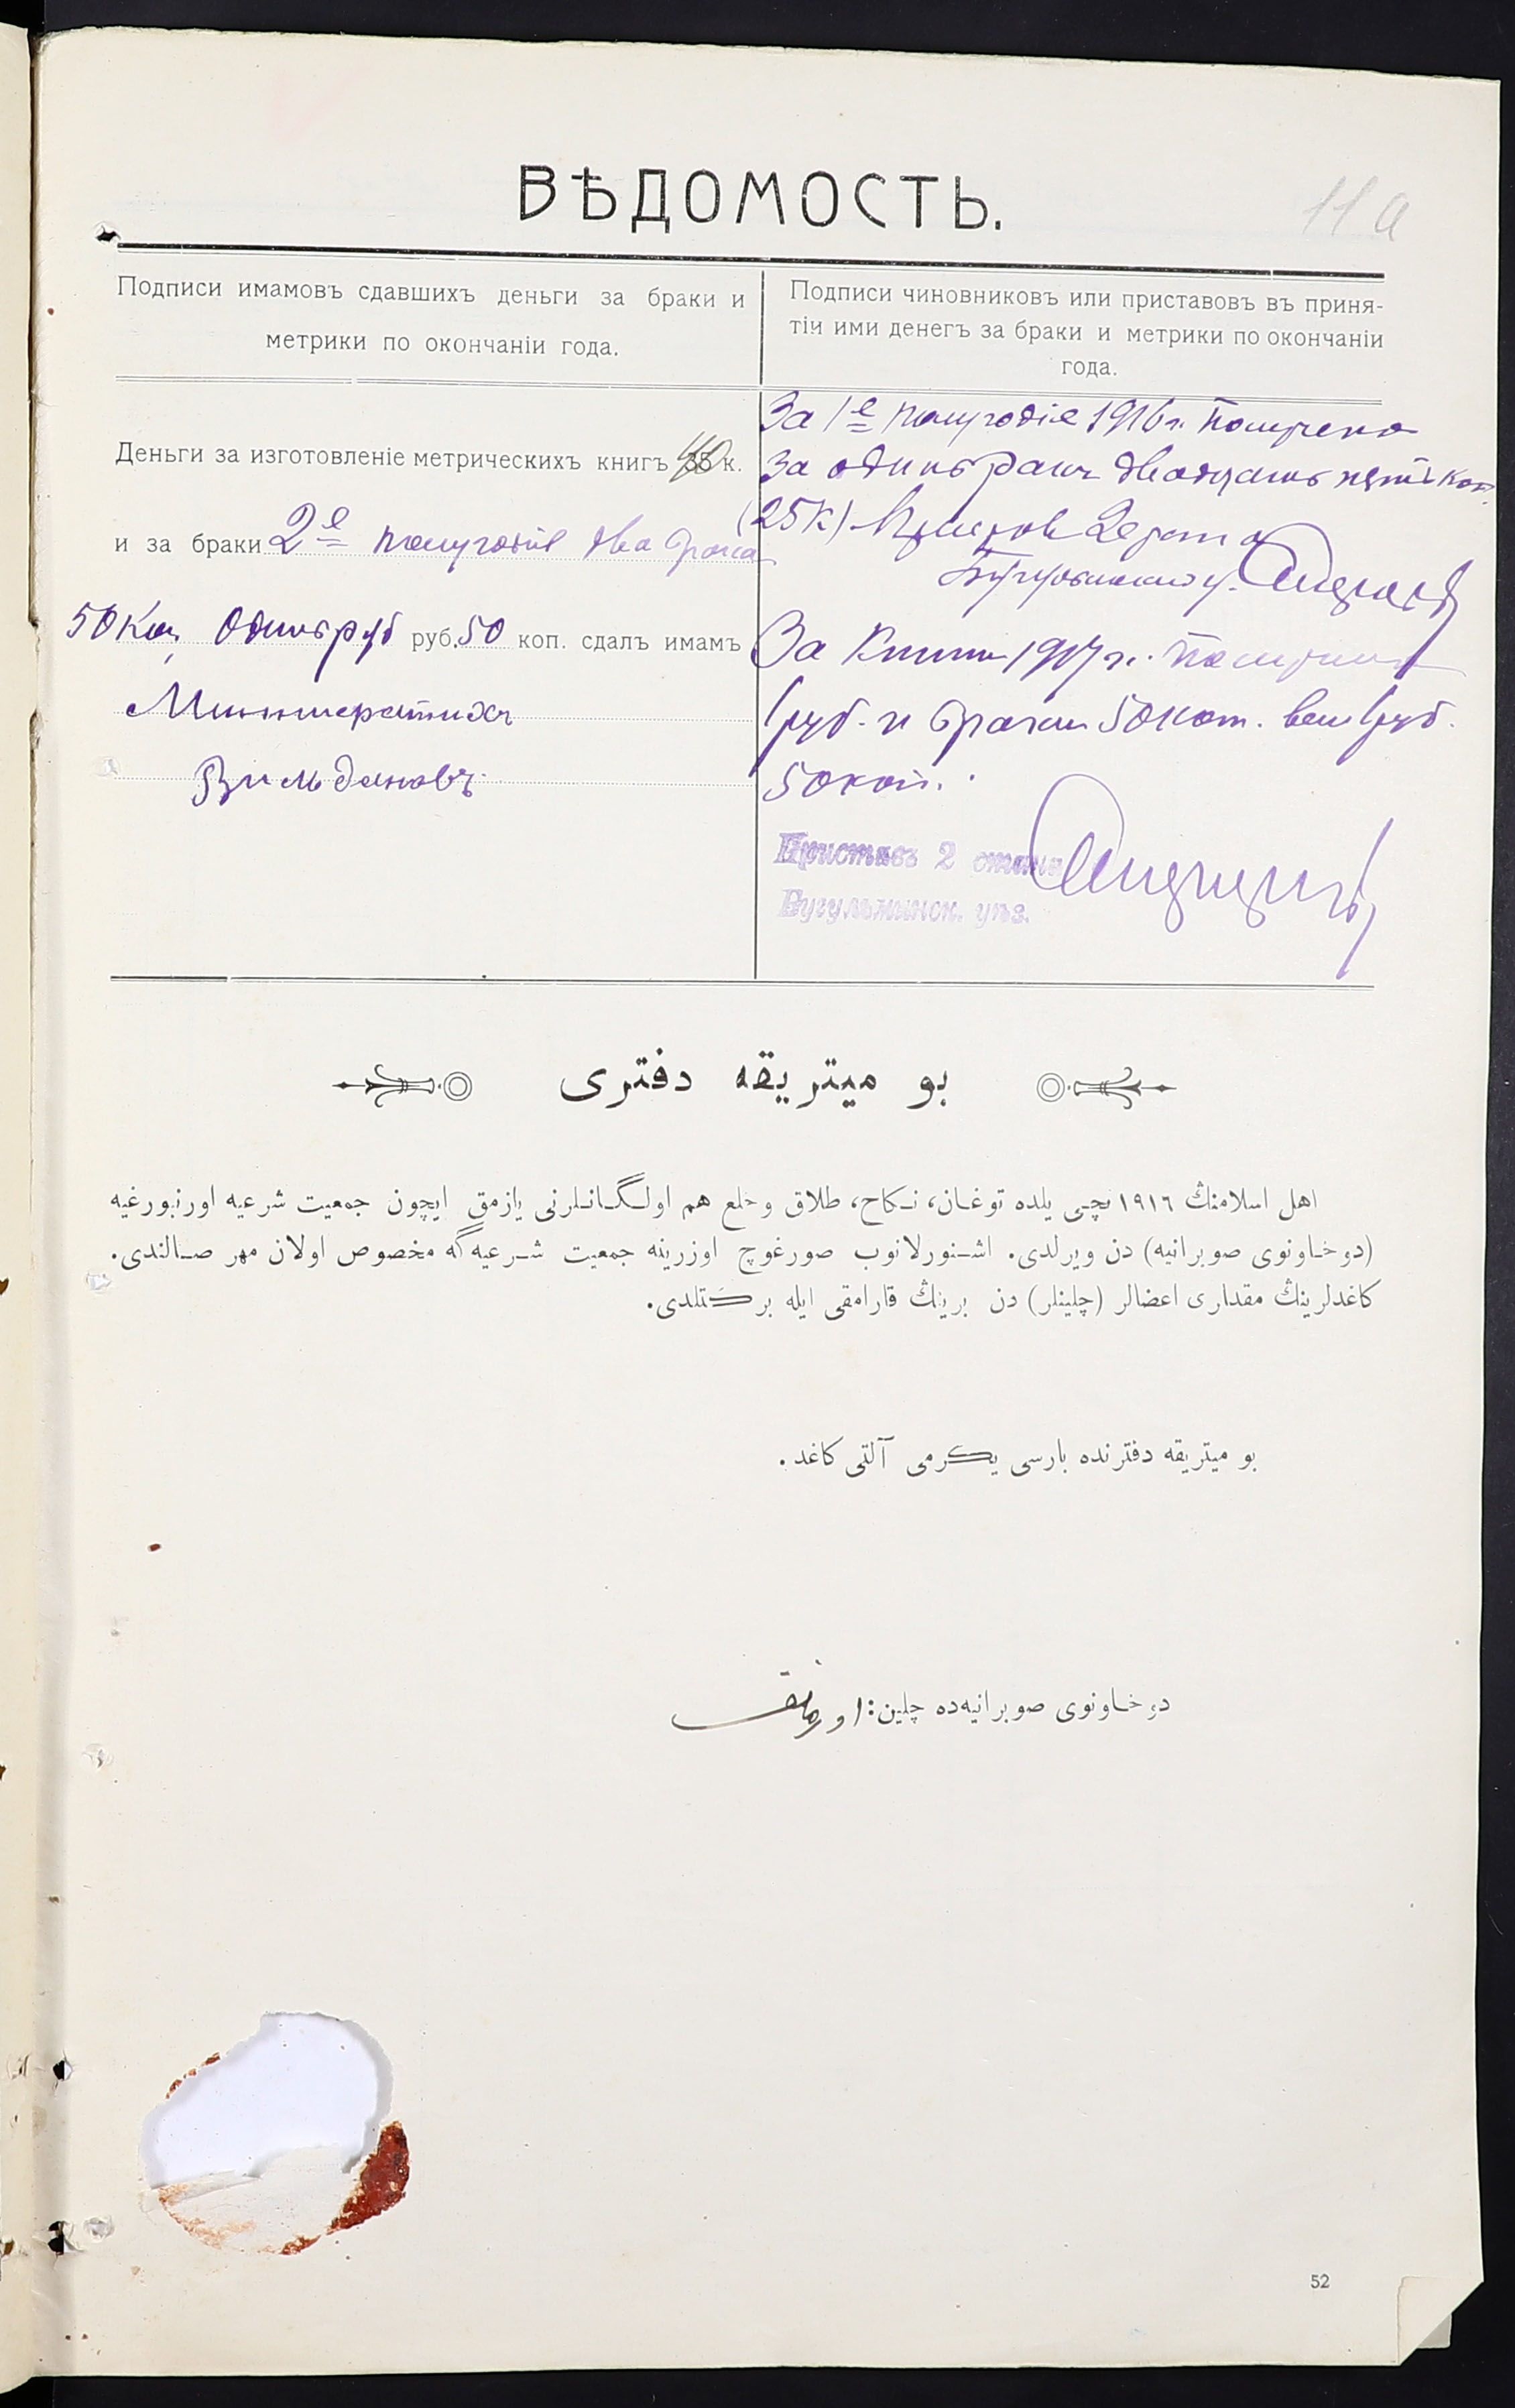 ВѢДОМОСТЬ.
11а
Подписи имамовъ сдавшихъ деньги за браки и
метрики по окончаніи года.
Деньги за изготовленіе метрическихъ книгъ 40 к.
и за браки 2е полугодіе два брака
50 коп. Одинъ руб руб. 50 коп. сдалъ имамъ
Миннигратихъ
Вильдановъ
Подписи чиновниковъ или приставовъ въ приня-
тіи ими денегъ за браки и метрики по окончаніи
года.
За 1е полугодіе 1916 г. Получено
за одинъ бракъ двадцать пять коп.
(25 к) Приставъ 2 стана
Бугульминскаго у.
За книги 1917 г. получилъ
1 руб. и браки 50 коп. всего 1 руб.
50 коп.
Приставъ 2 стана
Бугульминск. уѣз.
بو ميتريقه دفترى
اهل اسلامنڭ ١٩١٦ نچى يلده توغان، نكاح، طلاق وخلع هم اولگانلرنى يازمق ايچون جمعيت شرعيه اورنبورغيه
(دوخاونوى صوبرانيه) دن ويرلدى. اشنورلانوب صورغوچ اوزرينه جمعيت شرعيه گه مخصوص اولان مهر صالندى.
كاغدلرينڭ مقدارى اعضالر (چلينلر) دن برينڭ قارامقى ايله بركتلدى.
بو ميتريقه دفترنده بارسى يكرمى آلتى كاغد.
دوخاونوى صوبرانيه‌ده چلين:
52